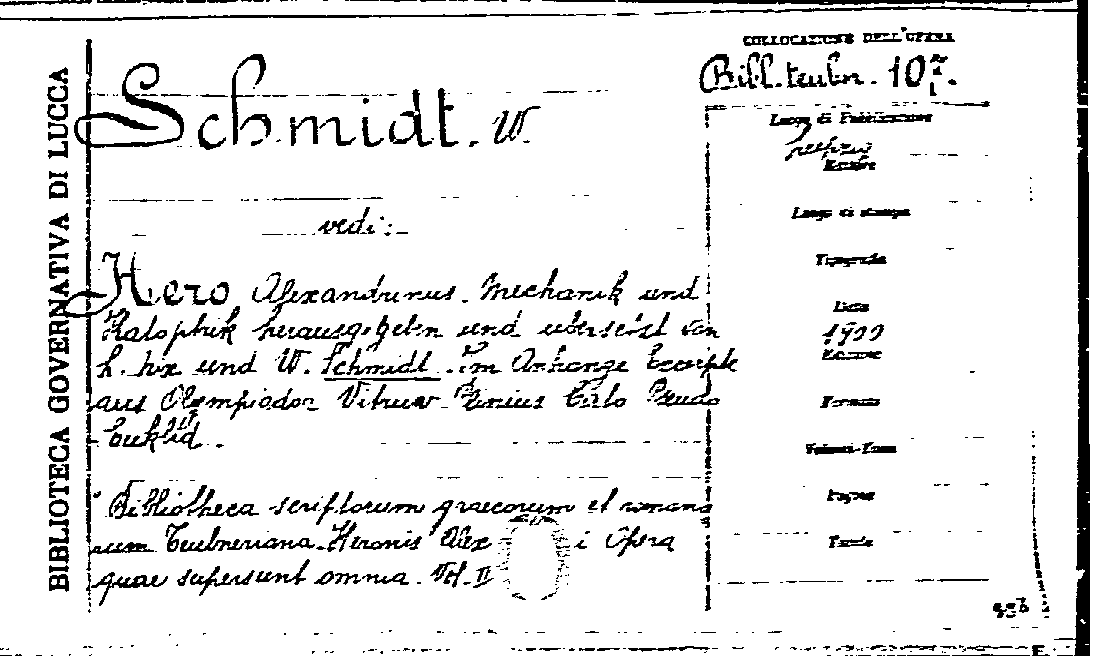 BIBLIOTECA GOVERNATIVA DI LUCCA
Schmidt. W
vedi:
Hero Alexandrinus. Mechanik und
Katoptrik herausgegeben und uberserzt von
L. Nix und W. Schmidt. Im Anhange Excerpte
aus Olympiodor Vitruv Plinius Cato Pseudo
Euklid.
Bibliotheca scriptorum graecorum et romano
rum Teubneriana. Heronis Alex i Opera
quae supersunt omnia. Vol. II
COLLOCAZIONE DELL'OPERA
Bibl. teubn. 107
Luogo di Pubblicazione
Luogo di stampa
Tipografia
Data
1900
Edizione
Formato
Volumi-Tomi
Pagine
Tavole